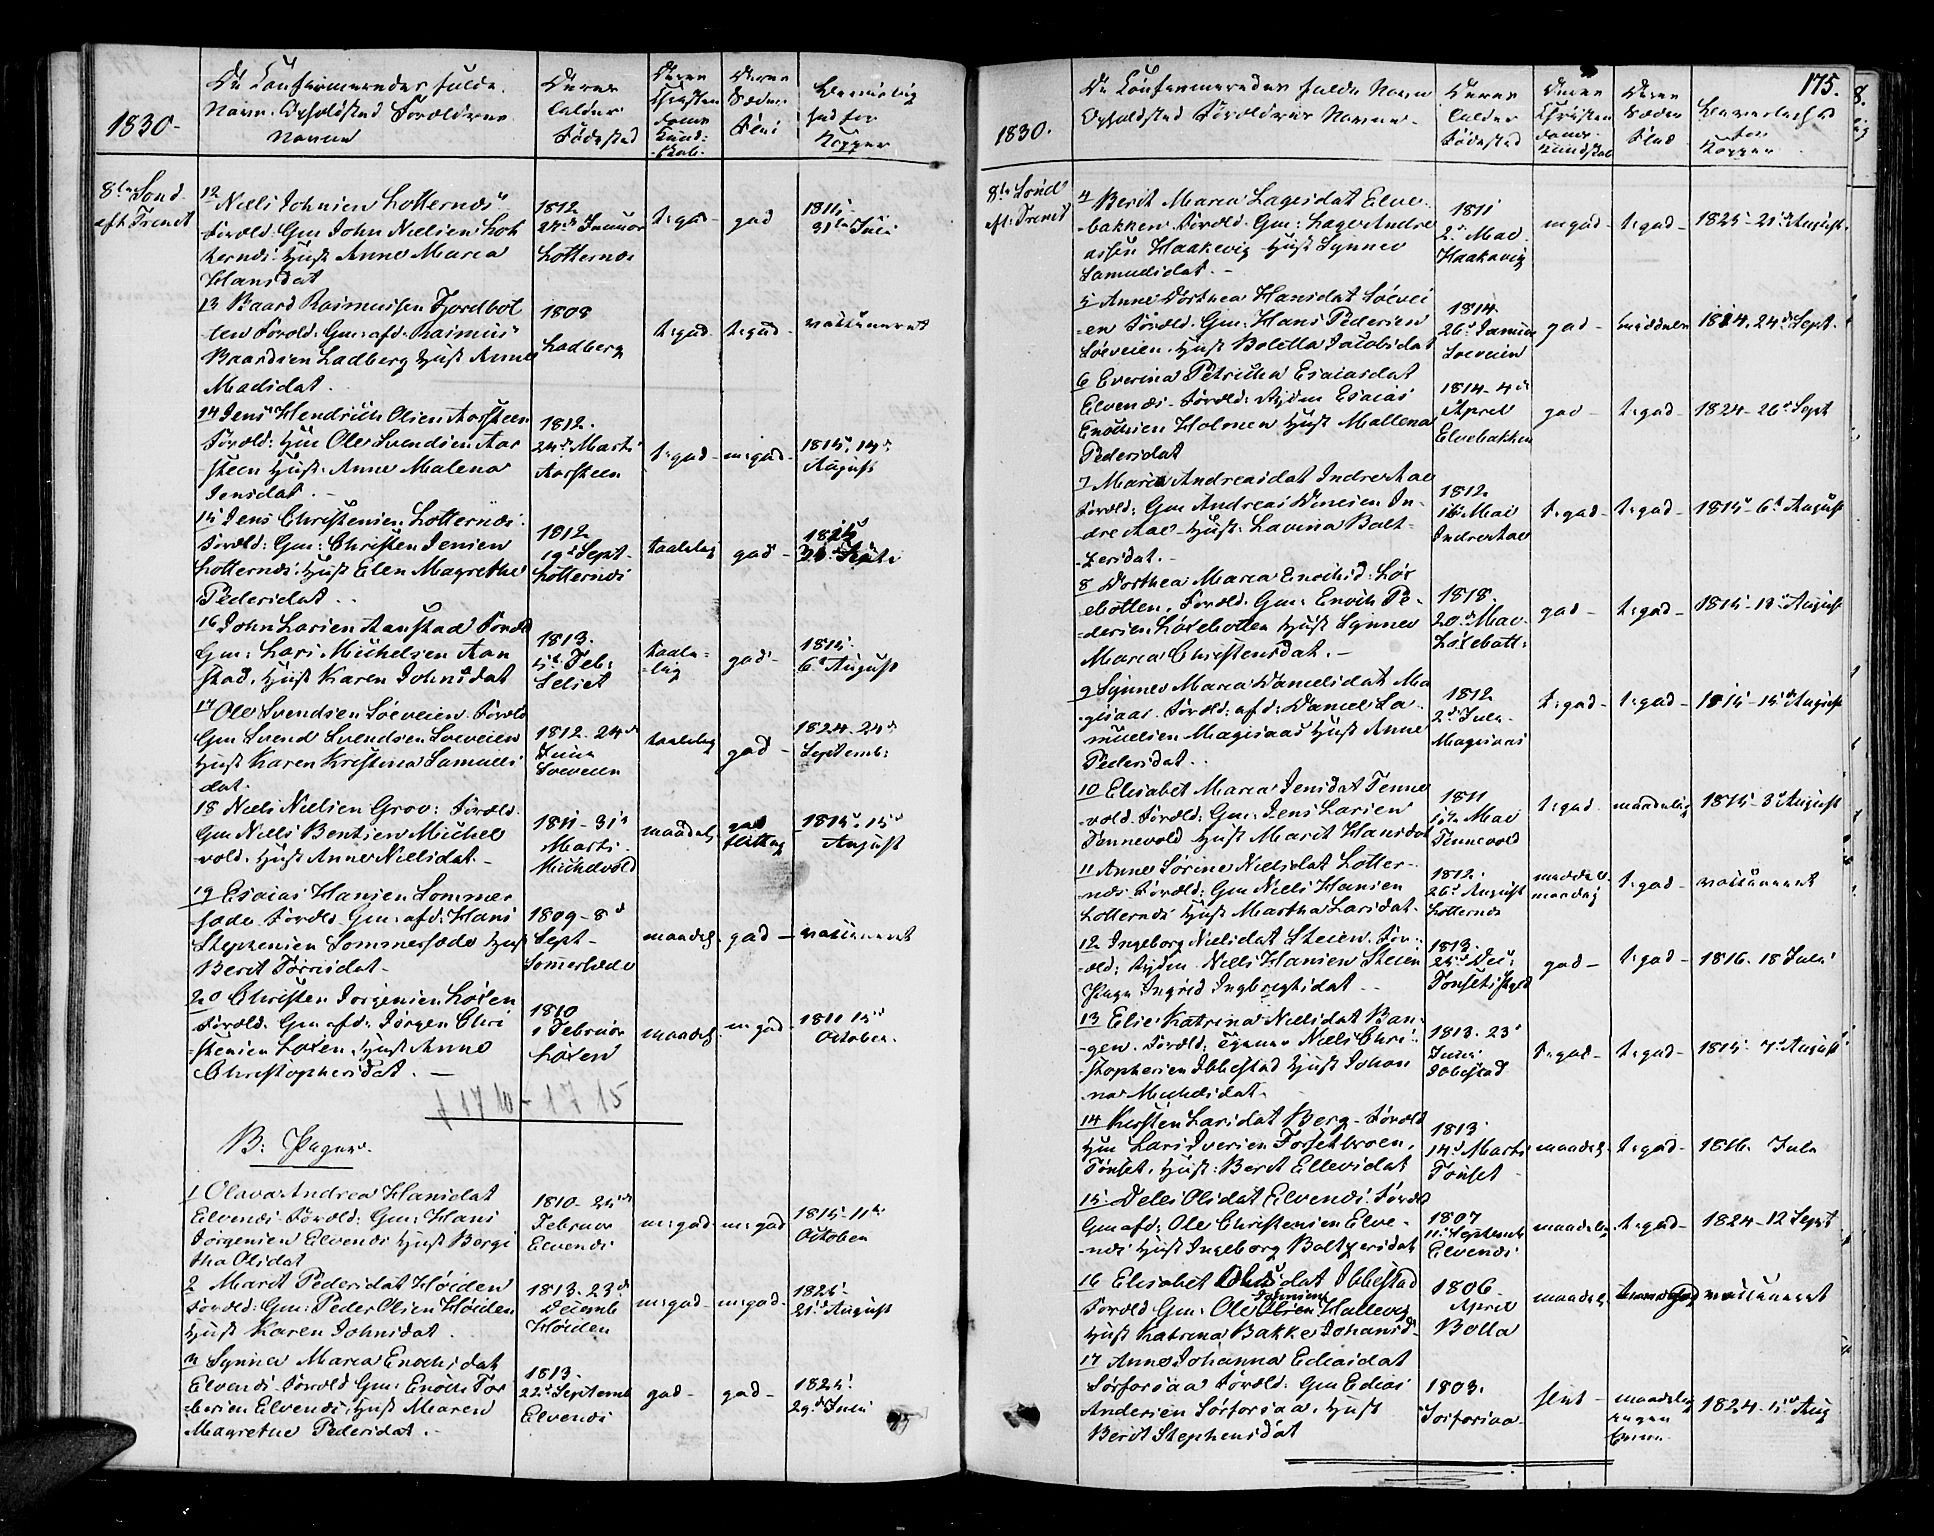 1830.
De Confirmeredes fulde
Navn. Opholdsted Forældrenes
Navne
Deres
Alder
Fødested
Deres
Christen
doms
Kund-
skab.
Deres
Sæder
Flid
8de Sønd
aft Trenit
12
Niels Johnsen Lotternes
Foræld: Gm John Nielsen Lot
ternes Hust Anne Maria
Hansdat
1812
Januar
Lotternes
t:god
god
1815
31te Juli
13 Baard Rasmussen Fjordbot
ten Foræld: Gm: afd: Rasmus
Baardsen Ladberg Hust Anne
Madsdat.
1808
Ladberg
t:god
t:god
vaccineret
14 Jens Hendrich Olsen Aarsteen
Foræld: Hm Ole Svendsen Aar
steen Hust: Anne Malena
Jensdat.
1812.
24de Marts
Aarsteen
t:god
m:god
1815. 14de
August
15 Jens Christensen Lotternes.
Foræld: Gm: Christen Jensen
Lotternes. Hust Elen Magrethe
Pedersdat.
1812
19de Sept
Lotternes
taalelig
god
16 John Larsen Aanstad Foræld
Gm: Lars Michelsen Aan
stad, Hust Karen Johnsdat
1813.
5te Feb:
Selset
taale-
lig
god
1815.
6te August
17 Ole Svendsen Søeveien. Foræld
Gm Svend Svendsen Søeveien
Hust Karen Kristina Samuels
dat.
1812. 24de
Juni
Soeveien
taalelig
god
1824. 24de
Septemb:
18 Niels Nielsen Grov: Foræld
Gm Niels Bentsen Michel
vold. Hust Anne Nielsdat.
1811 - 31te
Marts
Michelvold
maadel.
god
flittig
1815. 15de
August
19 Esaias Hansen Sommer
sæde Foræld Gm: afd: Hans
Stephensen Sommersæde Hust
Berit Torrisdat
1809-8de
Sept
Somersæde
maadel.
god
vaccineret
20 Christen Jorgensen Løxen
Foræld. Gm afd: Jørgen Chri
stensen Løxen. Hust Anne
Christophersdat.
1810
1 Februar
Løxen
maadel.
m.god
1811 15de
October.
f 1710 - 1715
B: Piger.
1 Olava Andrea Hansdat
Elvenes Foræld: Gm: Hans
Jørgensen Elvenes Hust Bergi
tha Olsdat
1810. 25de
Februar
Elvenes
m:god
m:god
1815-11te
October
2 Marit Pedersdat Høiden
Foræld: Gm: Peder Olsen Høiden
Hust Karen Johnsdat.
1813. 23de
Decemb
Høiden
m:god
m:god
1825.
21de August
3 Synnev Maria Enochsdat
Elvenes Foræld Gm: Enoch Tor
bersen Elvenes. Hust Maren
Magrethe Pedersdat.
1813.
22de Septemb
Elvenes
god
god
1825.
29de Juli
175.
1830.
De Confirmeredes fulde Navn
Opholdsted Forældrenes Navne.
Deres
Alder
Fødested
Deres
Christen
doms
Kundskab
Deres
Sæder
Flid
8de Sønd
aft: Trenit
4 Berit Maria Lagesdat Elve-
bakken. Foræld. Gm: Lage Andre
assen Haakevig Hust Synnev
Samuelsdat.
1811
2de Mai
Haakevig
m god
t:god
1825-21de August
5 Anne Dorthea Hansdat Søevei
en Foræld. Gm: Hans Pedersen
Søeveien. Hust Boletta Jacobsdat
1814.
26de Januar
Soeveien
god
1824. 24de Sept.
6 Everina Petricka Esaiasdat
Elvenes. Foræld: Ryden Esaias
Enochsen Holonen Hust Mallena
Pedersdat
1814-4de
April
Elvebakken
god
t:god
1824-26de Sept
7 Maria Andreasdat Indre Aae
Foræld: Gm Andreas Densen In-
dre Aae. Hust: Lavina Balt-
zersdat.
1812
16de Mai
Indre Aae
t:god
t:god
1815-6te August
8 Dorthea Maria Enochsd: Løx
ebotten. Foræld. Gm: Enoch Pe-
dersen Løxebotten Hust Synnev
Maria Christensdat.
1818.
20de Mai
Løxebott:
god
t:god
1815-18de August
9 Synnev Maria Danielsdat Ma
gesaas. Foræld: afd: Daniel Sa-
muelsen Magesaas Hust Anne
Pedersdat.
1812
2de Juli
Magesaas
t:god
t:god
1815-15de August
10 Elisabet Maria Jensdat Tenne
vold. Foræld: Gm: Jens Larsen
Tennevold Hust Marit Hansdat
1811
Mai
Tennevold
t:god
maadelig
1815-3de August
11 Anne Sørine Nielsdat Lotter-
nes Foræld: Gm Niels Hansen
Lotternes Hust Martha Larsdat.
1812.
26de August
Lotternes
t:god
vaccineret
12 Ingeborg Nielsdat Steien. For-
æld: Ryden Niels Hansen Steien
Pige Ingrid Ingbregtsdat
1813.
25de Dec:
Tonset
god
t:god
1816. 18 Juli
13 Elie Katrina Nielsdat Ban-
gen. Foræld: Tjener Niels Chri-
stophersen Ibbestad Hust Johan
na Michelsdat.
1813. 23de
Juni
Ibbestad
t:god
t:god
1815. 7de August
14 Kirsten Larsdat Berg. Foræld
Hm Lars Iversen Forsetbroen,
Tønset. Hust: Berit Ellevsdat
1813.
14de Marts
Tønset
maadel.
t:god
1816. Juli
15. Deles Olsdat Elvenes. Foræld
Gm afd: Ole Christensen Elve-
nes Hust Ingeborg Baltzersdat
1807
11te Septemb
Elvenes
maadelig
t:god
1824-12 Sept
16 Elisabet Olsdat Ibbestad
Foræld Gm: Ole Hallevig
Hust Katrina Bakke Johansd.
1806.
April
Bolla
maadel.
vaccineret
17 Anne Johanna Ediasdat
Sørforsaa Foræld: Gm Edias
Andersen Sørforsaa. Hust
Berit Stephensdat
1803.
Sørforsaa
slet
maadelig
ingen
1824-15de Aug